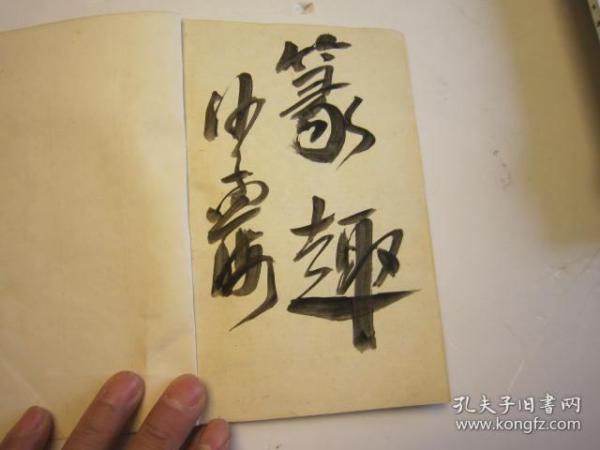 篆趣
沙孟海
孔夫子旧书网
www.kongfz.com